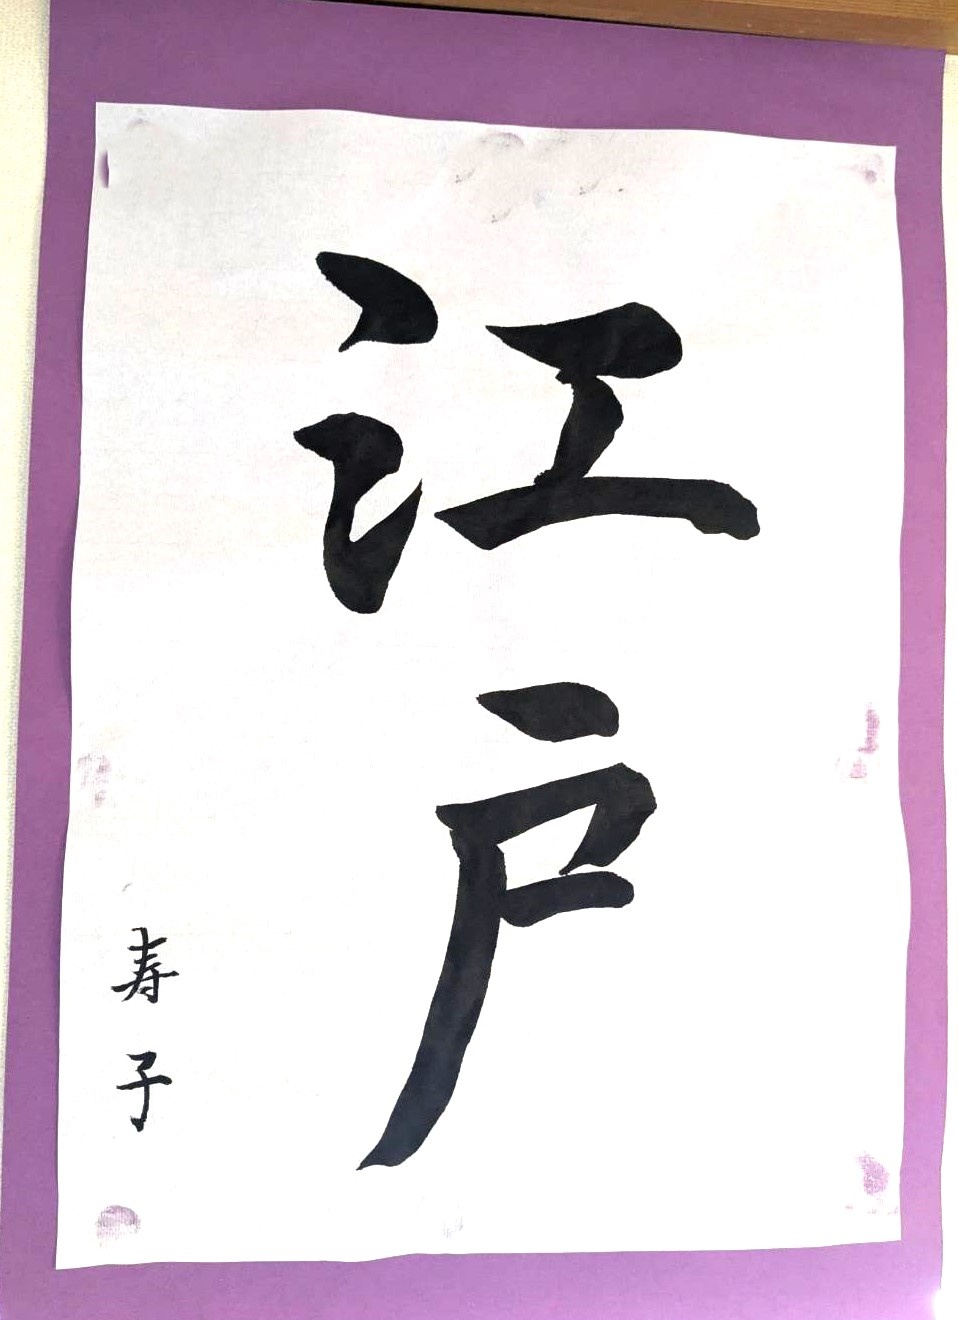 江戸
寿子